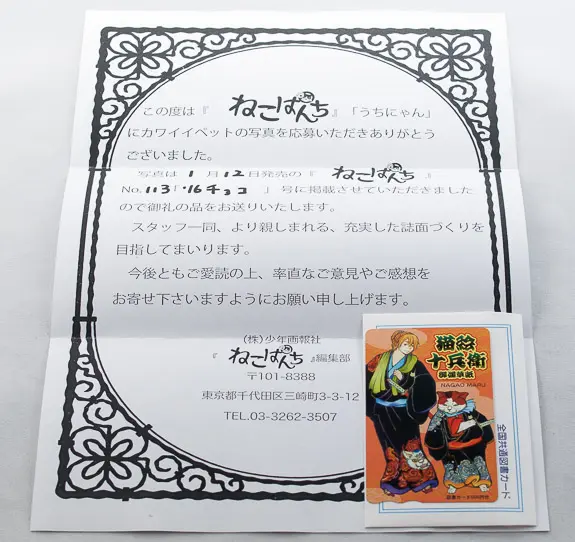 この度は『ねこぱんち』「うちにゃん」
にカワイイペットの写真を応募いただきありがとう
ございました。
写真は1月12日発売の『ねこぱんち』
No.113「'16チョコ 」号に掲載させていただきました
ので御礼の品をお送りいたします。
スタッフ一同、より親しまれる、充実した誌面づくりを
目指してまいります。
今後ともご愛読の上、率直なご意見やご感想を
お寄せ下さいますようにお願い申し上げます。
(株)少年画報社
『ねこぱんち』編集部
〒101-8388
東京都千代田区三崎町3-3-12
TEL.03-3262-3507
猫絵
十兵衛
御伽草紙
NAGAO MARU
全国共通図書カード